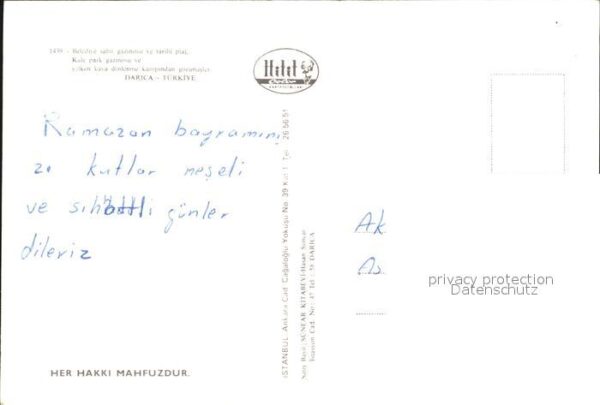 1439 - Belediye sahil gazinosu ve tarihi plaj,
Kale park gazinosu ve
yelken kaya dinlenme kampından görünüşler.
DARICA - TÜRKİYE
Hitit
Ramazan bayramını
zı kutlar neşeli
ve sıhatli günler
dileriz
HER HAKKI MAHFUZDUR.
İSTANBUL Ankara Cad. Cağaloğlu Yokuşu No. 39 Kat 1 Tel: 26 56 51
Satış Bayii: SUNLAR KİTABEVİ-Hasan Sonlar
İstasyon Cad. No: 47 Tel : 58 DARICA
Ak
As
privacy protection
Datenschutz